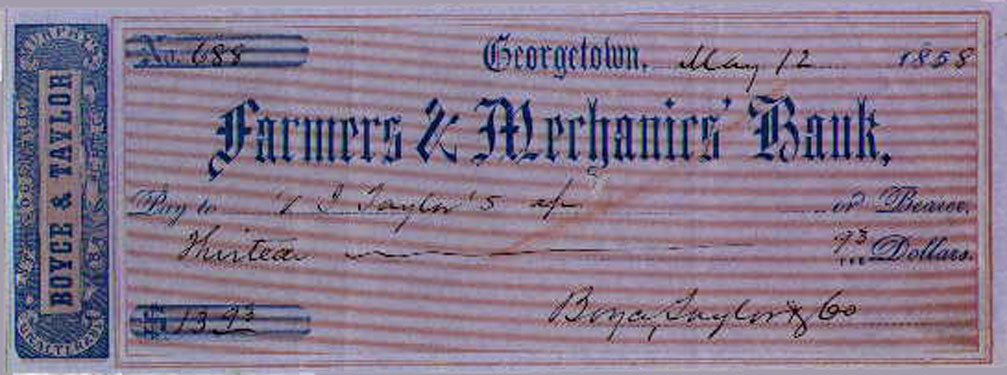 BOYCE & TAYLOR
No. 688
Georgetown, May 12 1858
Farmers & Mechanics' Bank,
Pay to Taylor's or Bearer,
Thirteen 93 Dollars.
$ 13.93
Boyce, Taylor & Co